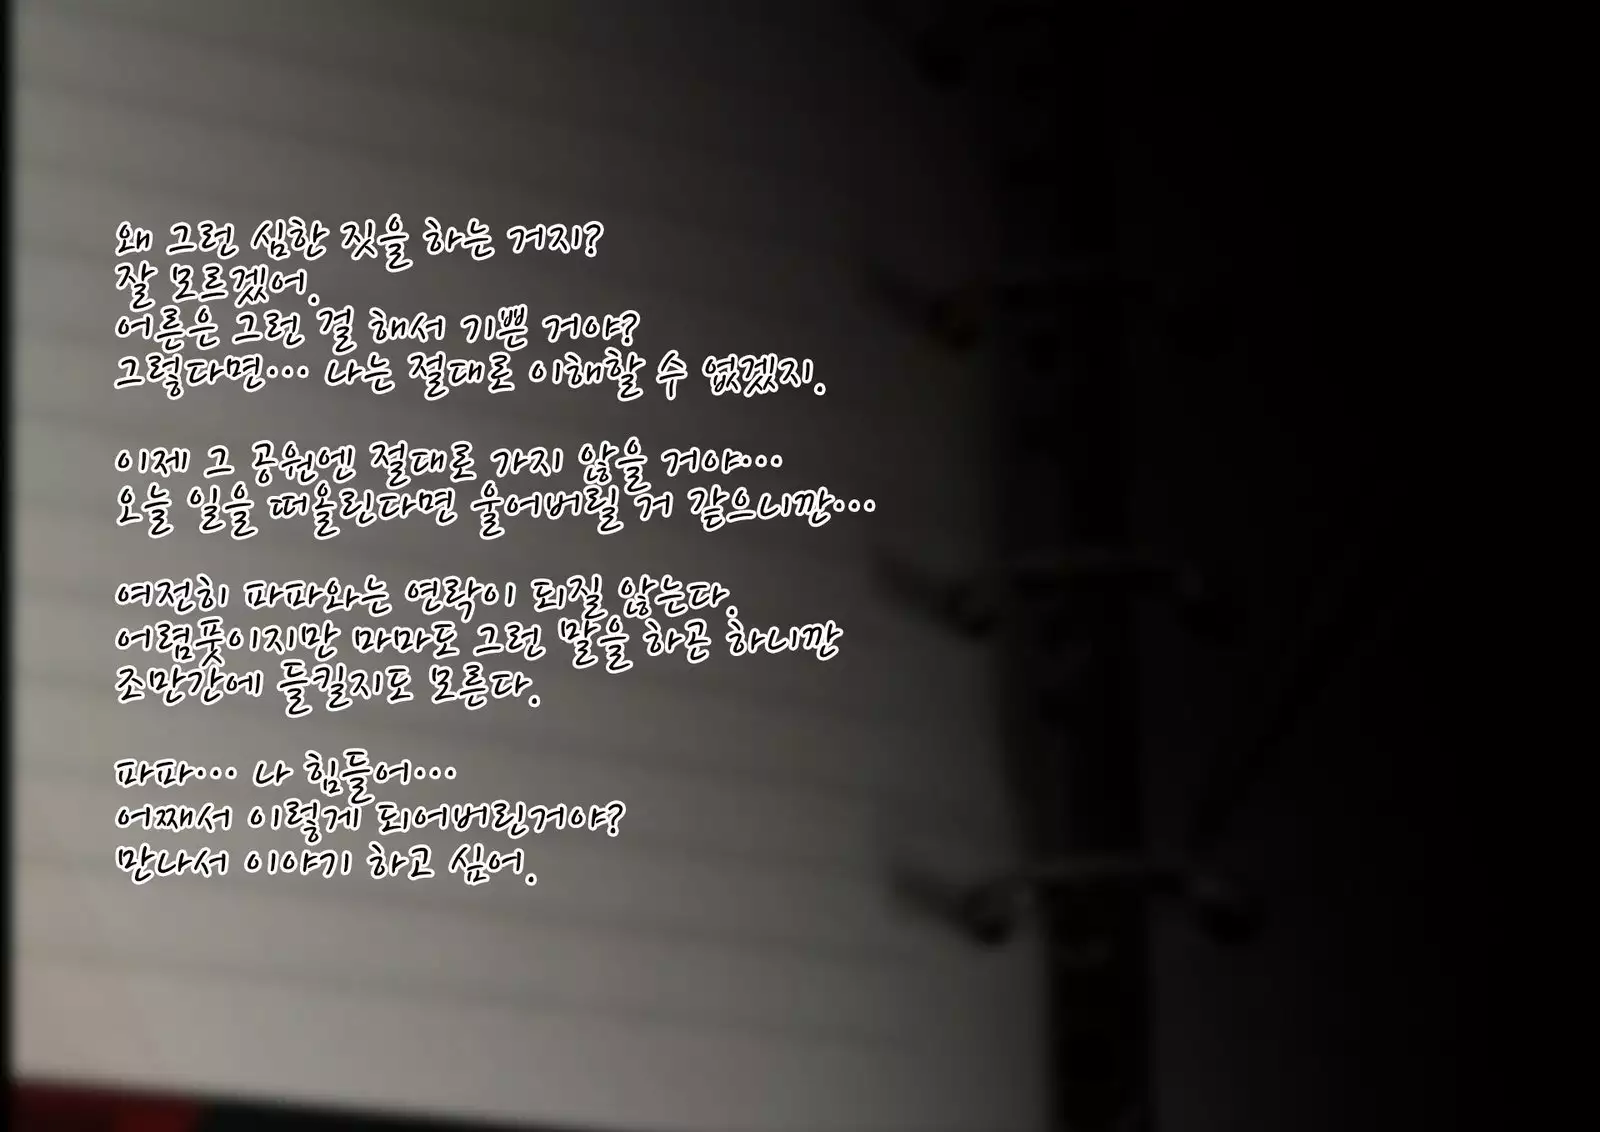 왜 그런 심한 짓을 하는 거지?
잘 모르겠어.
어른은 그런 걸 해서 기쁜 거야?
그렇다면… 나는 절대로 이해할 수 없겠지.
이제 그 공원엔 절대로 가지 않을 거야…
오늘 일을 떠올린다면 울어버릴 거 같으니깐…
여전히 파파와는 연락이 되질 않는다.
어렴풋이지만 마마도 그런 말을 하곤 하니깐
조만간에 들킬지도 모른다.
파파… 나 힘들어…
어째서 이렇게 되어버린거야?
만나서 이야기 하고 싶어.